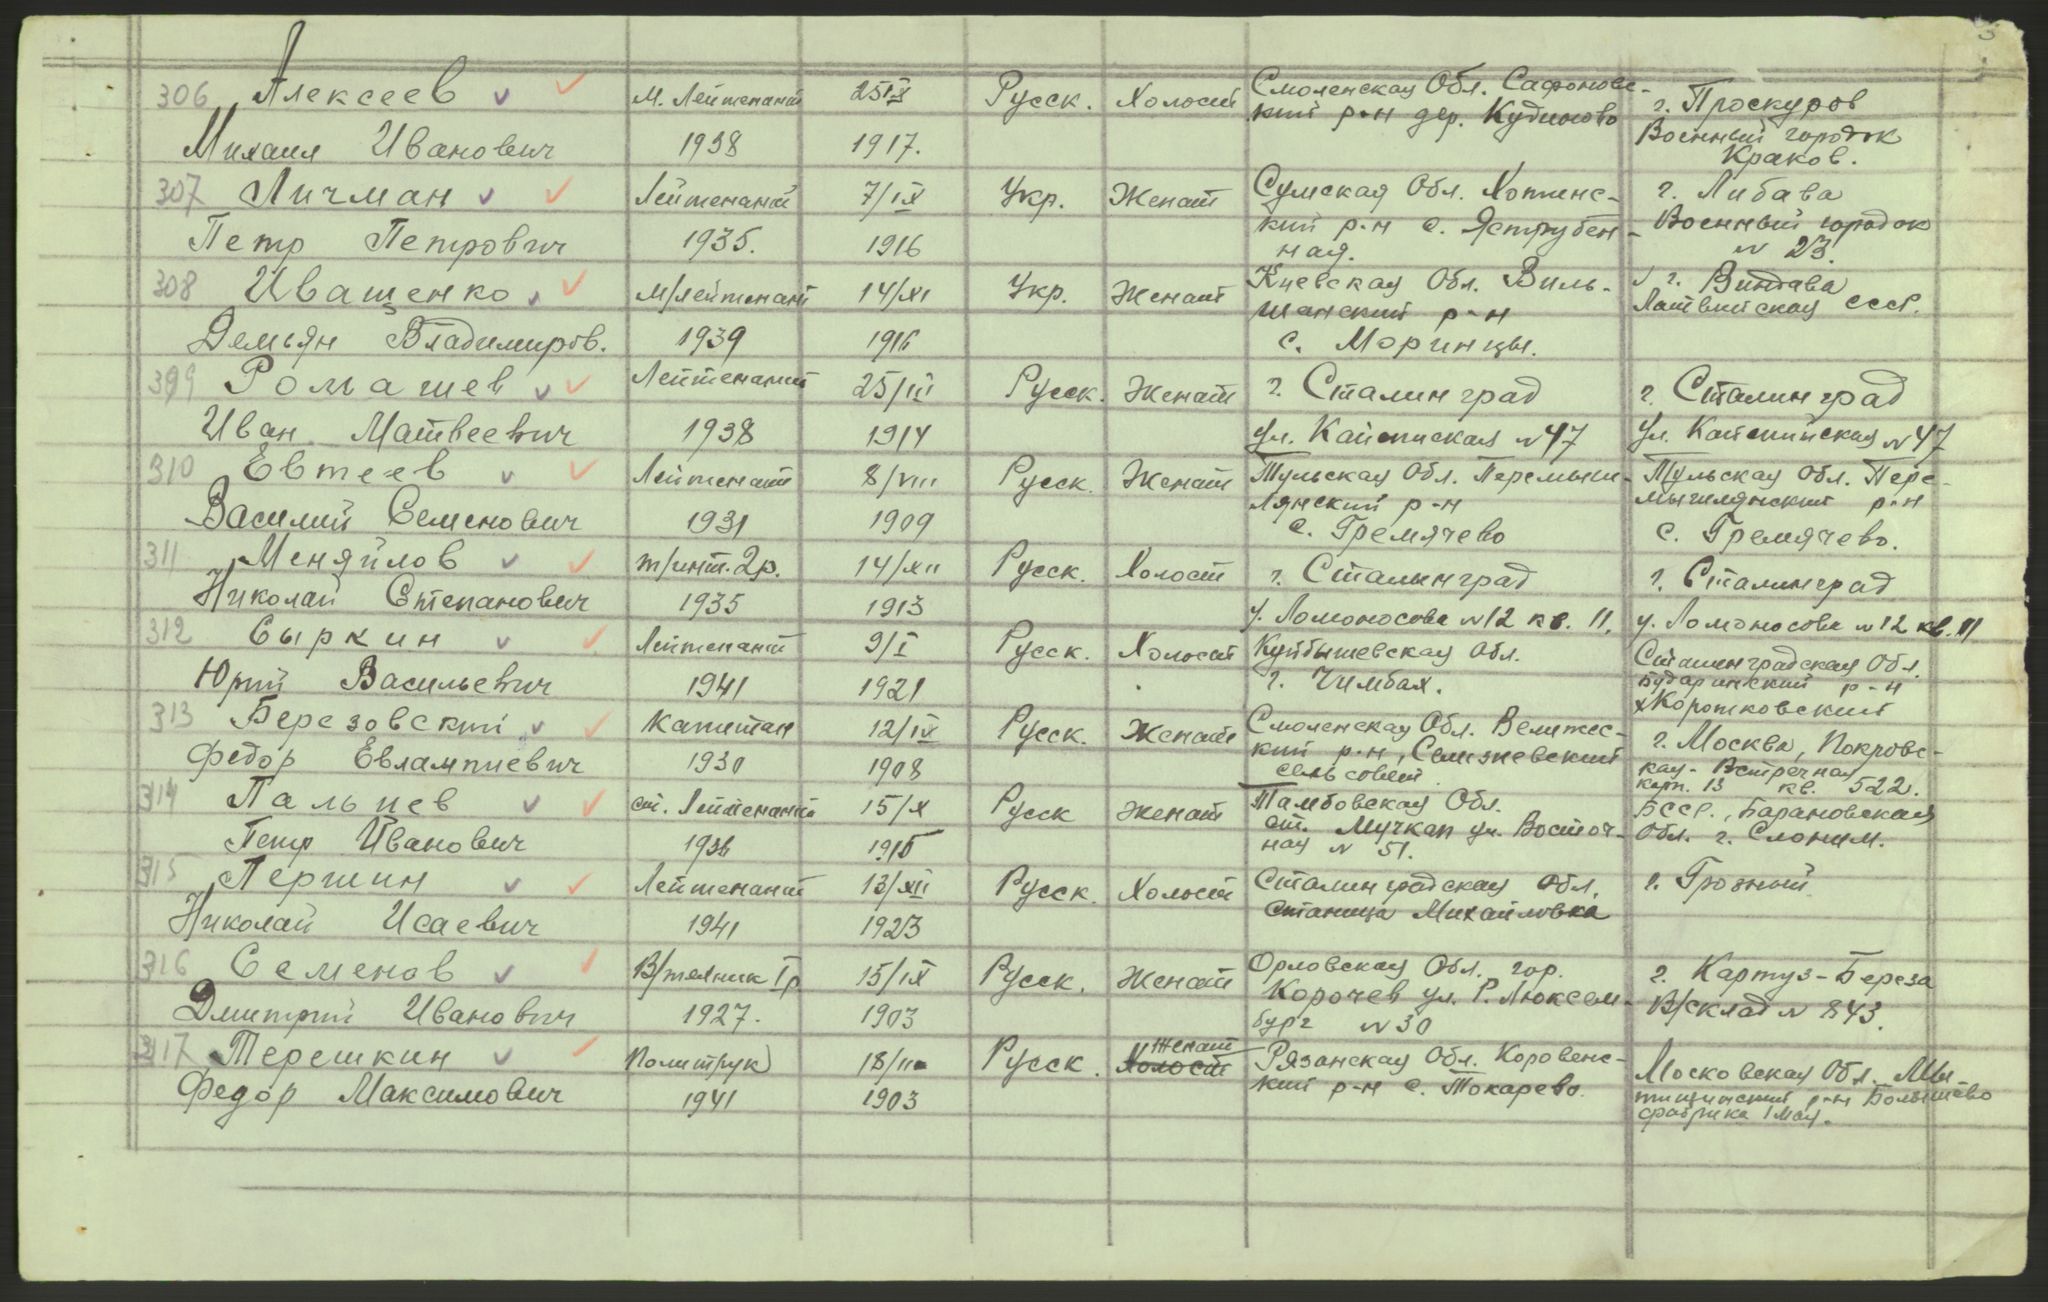 306 Алексеев м. Лейтенант 25 IX Русск. Холост Смоленская Обл. Сафоновс- г. Проскуров
кий р-н дер. Кудиново Военный городок
Михаил Иванович 1938 1917. Краков.
307 Личман Лейтенант 7/IX Укр. Женат Сумская Обл. Хотинс- г. Либава
кий р-н с. Яструбен- Военный городок
Петр Петрович 1935. 1916 ная. N 23.
308 Иващенко м/лейтенант 14/XI Укр. Женат Киевская Обл. Виль- г. Виндава
шанский р-н Латвийская ССР.
Демьян Владимиров. 1939 1916 с. Моринцы.
309 Ромашев Лейтенант 25/III Русск. Женат г. Сталинград г. Сталинград
Иван Матвеевич 1938 1914 ул. N 47 ул. N 47
310 Евтеев Лейтенант 8/VIII Русск. Женат Тульская Обл. Перемыш- Тульская Обл. Пере-
лянский р-н мышлянский р-н
Василий Семенович 1931 1909 с. Гремячево с. Гремячево.
311 Меняйлов т/инт. 2р. 14/XII Русск. Холост г. Сталинград г. Сталинград
Николай Степанович 1935 1913 у. Ломоносова N 12 кв. 11. у. Ломоносова N 12 кв. 11
312 Сыркин Лейтенант 9/I Русск. Холост Куйбышевская Обл. Сталинградская Обл.
Юрий Васильевич 1941 1921 г. Чимбах. Бударинский р-н
х Коротковский
313 Березовский Капитан 12/IX Русск. Женат Смоленская Обл. Велижс- г. Москва, Покровс-
кий р-н, Селезневский кая-Встречная
Федор Евлампиевич 1930 1908 сельсовет корп. 13 кв. 522.
314 Пальцев ст. Лейтенант 15/X Русск Женат Тамбовская Обл. БССР., Барановская
ст. Мучкап ул. Восточ- Обл. г. Слоним.
Петр Иванович 1936 1915 ная N 51.
315 Першин Лейтенант 13/XII Русск. Холост Сталинградская Обл. г. Грозный
Николай Исаевич 1941 1923 станица Михайловка
316 Семенов В/техник I р 15/IX Русск. Женат Орловская Обл. гор. г. Картуз-Береза
Корочев ул. Р. Люксем- В/склад N 843.
Дмитрий Иванович 1927. 1903 бург N 30
317 Терешкин Политрук 18/II Русск. Холост Женат Рязанская Обл. Коровенс- Московская Обл. Мы-
кий р-н с. Токарево. тищинский р-н Болышево
Федор Максимович 1941 1903 фабрика 1 мая.